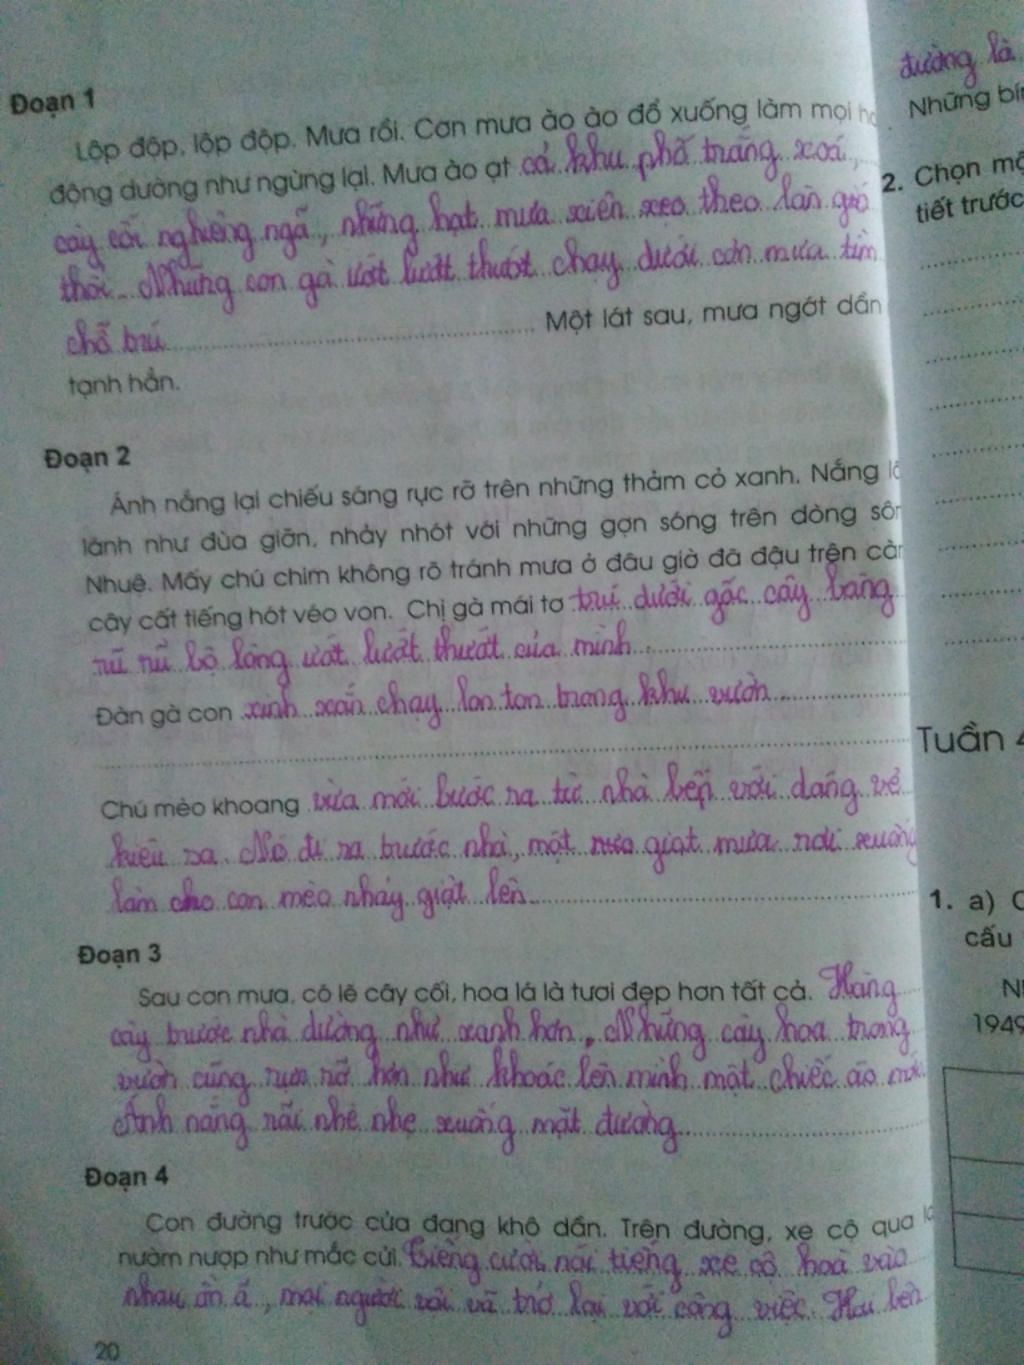 Đoạn 1
Lộp độp, lộp độp. Mưa rồi. Cơn mưa ào ào đổ xuống làm mọi
động dường như ngừng lại. Mưa ào ạt cả khu phố trắng xoá,
cây cối nghiêng ngã, những hạt mưa xiên xẹo theo làn gió
thổi. Những con gà ướt lướt thướt chạy dưới cơn mưa tìm
chỗ trú
Một lát sau, mưa ngớt dần
tạnh hẳn.
Đoạn 2
Ánh nắng lại chiếu sáng rực rỡ trên những thảm cỏ xanh. Nắng
lánh như đùa giỡn, nhảy nhót với những gợn sóng trên dòng
Nhuệ. Mấy chú chim không rõ tránh mưa ở đâu giờ đã đậu trên
cây cất tiếng hót véo von. Chị gà mái tơ trú dưới gốc cây bàng
rũ rũ bộ lông ướt lướt thướt của mình.
Đàn gà con xinh xắn chạy lon ton trong khu vườn
Chú mèo khoang vừa mới bước ra từ nhà bếp với dáng vẻ
kiêu sa. Nó đi ra trước nhà, một giọt mưa rơi xuống
làm cho con mèo nhảy giật lên
Đoạn 3
Sau cơn mưa, có lẽ cây cối, hoa lá là tươi đẹp hơn tất cả. Hàng
cây trước nhà dường như xanh hơn. Những cây hoa trong
vườn cũng rực rỡ hơn như khoác lên mình một chiếc áo mới
Ánh nắng rãi nhè nhẹ xuống mặt đường
Đoạn 4
Con đường trước cửa đang khô dần. Trên đường, xe cộ qua
nườm nượp như mắc cửi. Tiếng cười nói tiếng xe cộ hoà vào
nhau ồn ả, mọi người vội vã trở lại với công việc. Hai bên
20
đường là
Những
2. Chọn
tiết trước
Tuần
1. a)
cấu
1949